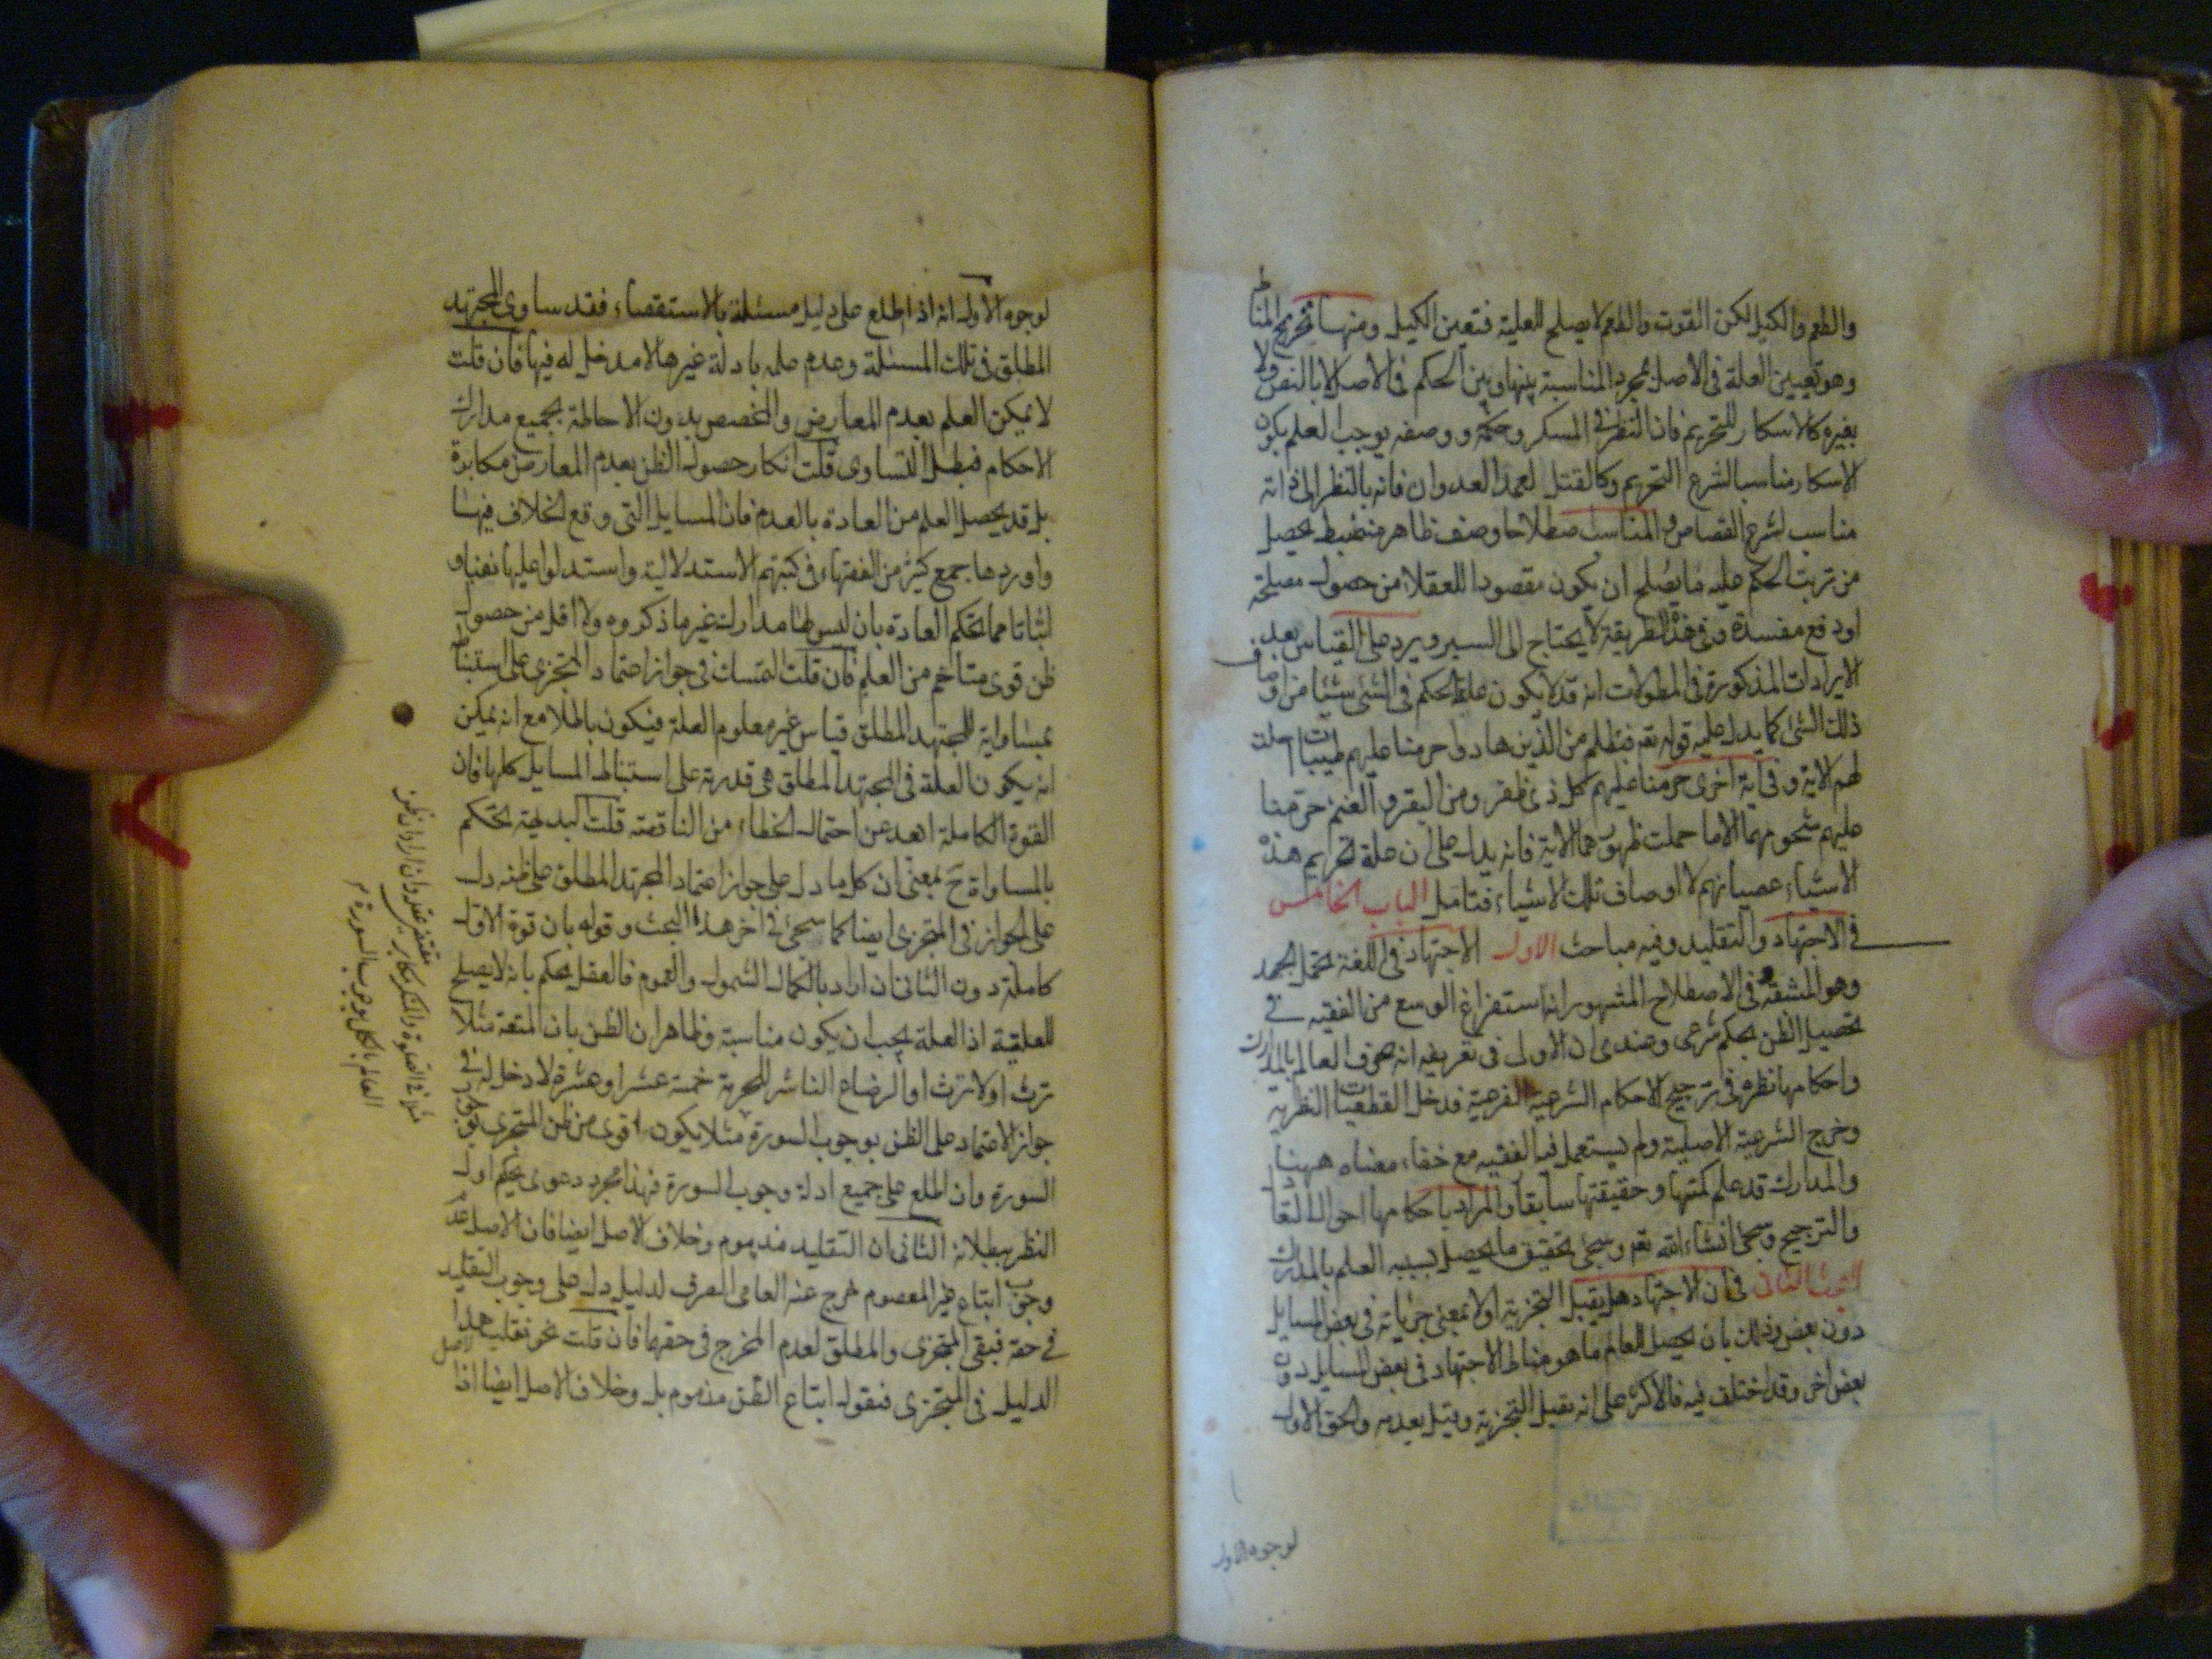 والطعم والكيل لكن القوت والطعم لا يصلح للعلية فتعين الكيل ومنها تخريج المناط
وهو تعيين العلة فى الاصل بمجرد المناسبة بينها وبين الحكم فى الاصل لا بالنص ولا
بغيره كالاسكار للتحريم فان النظر فى المسكر وحكمه ووصفه يوجب العلم بكون
الاسكار مناسبا لشرع التحريم وكالقتل لعمد العدوان فانه بالنظر الى ذاته
مناسب لشرع القصاص والمناسب اصطلاحا وصف ظاهر منضبط يحصل
من ترتب الحكم عليه ما يصلح ان يكون مقصودا للعقلاء من حصول مصلحة
او دفع مفسدة وفى هذه الطريقة لا يحتاج الى السبر ويرد على القياس بعد
الايرادات المذكورة فى المطولات انه قد لا يكون علة الحكم فى الشئ شيئا من اوصاف
ذلك الشئ كما يدل عليه قوله تعه فبظلم من الذين هادوا حرمنا عليهم طيبات احلت
لهم الاية وفى اية اخرى حرمنا عليهم كل ذى ظفر ومن البقر والغنم حرمنا
عليهم شحومهما الا ما حملت ظهورهما الاية فانه يدل على ان علة تحريم هذه
الاشياء عصيانهم لا اوصاف تلك الاشياء فتامل الباب الخامس
فى الاجتهاد والتقليد وفيه مباحث الاول الاجتهاد فى اللغة تحمل الجهد
وهو المشقة وفى الاصطلاح المشهور انه استفراغ الوسع من الفقيه فى
تحصيل الظن بحكم شرعى وعندى ان الاولى فى تعريفه انه صرف العالم بالمدارك
واحكامها نظره فى ترجيح الاحكام الشرعية الفرعية فدخل القطعيات النظرية
وخرج الشرعية الاصلية ولم يستعمل فيه الفقيه مع خفاء معناه ههنا
والمدارك قد علم كميتها وحقيقتها سابقا والمراد باحكامها احوال التعادل
والترجيح وسيجئ انشاء الله تعه وسيجئ تحقيق ما يحصل بسببه العلم بالمدارك
البحث الثانى فى ان الاجتهاد هل يقبل التجزية اولا بمعنى جريانه فى بعض المسايل
دون بعض وذلك بان يحصل للعالم ما هو مناط الاجتهاد فى بعض المسايل دون
بعض اخر وقد اختلف فيه فالاكثر على انه يقبل التجزية وقيل بعدمه والحق الاول
لوجوه الاول
لوجوه الاول انه اذا اطلع على دليل مسئلة بالاستقصاء فقد ساوى المجتهد
المطلق فى تلك المسئلة وعدم علمه بادلة غيرها لا مدخل له فيها فان قلت
لا يمكن العلم بعدم المعارض والمخصص بدون الاحاطة بجميع مدارك
الاحكام فبطل التساوى قلت انكار حصول الظن بعدم المعارض مكابرة
بل قد يحصل العلم من العادة بالعدم فان المسايل التى وقع الخلاف فيها
واوردها جمع كثير من الفقهاء فى كتبهم الاستدلالية واستدلوا عليها نفيا و
اثباتا مما يحكم العادة بان ليس لها مدارك غير ما ذكروه ولا اقل من حصول
ظن قوى متاخم من العلم فان قلت التمسك فى جواز اعتماد المتجزى على استنباط
بمساواته للمجتهد المطلق قياس غير معلوم العلة فيكون باطلا مع انه يمكن
انه يكون العلة فى المجتهد المطلق هى قدرته على استنباط المسايل كلها فان
القوة الكاملة ابعد عن احتمال الخطاء من الناقصة قلت البديهة تحكم
بالمساواة ح بمعنى ان كل ما دل على جواز اعتماد المجتهد المطلق على ظنه دل
على الجواز فى المتجزى ايضا كما سيجئ فى اخر هذا البحث وقوله بان قوة الاول
كاملة دون الثانى ان اراد بالكمال الشمول والعموم فالعقل يحكم بانه لا يصلح
للعلية اذ العلة يجب ان يكون مناسبة وظاهر ان الظن بان المتعة مثلا
ترث اولا ترث او الرضاع الناشر للحرمة خمسة عشر او عشرة لا دخل له فى
جواز الاعتماد على الظن بوجوب السورة مثلا يكون اقوى من ظن المتجزى بوجوب
السورة وان اطلع على جميع ادلة وجوب السورة فهذا مجرد دعوى يحكم اول
النظر ببطلانه الثانى ان التقليد مذموم وخلاف الاصل ايضا فان الاصل عدم
وجوب اتباع غير المعصوم خرج عنه العامى الصرف لدليل دل على وجوب التقليد
فى حقه فبقى المتجزى والمطلق لعدم المخرج فى حقهما فان قلت نحن نقلب هذا
الدليل فى المتجزى فنقول اتباع الظن مذموم بل وخلاف الاصل ايضا اذ الاصل
العالم بالكل بوجوب السورة م